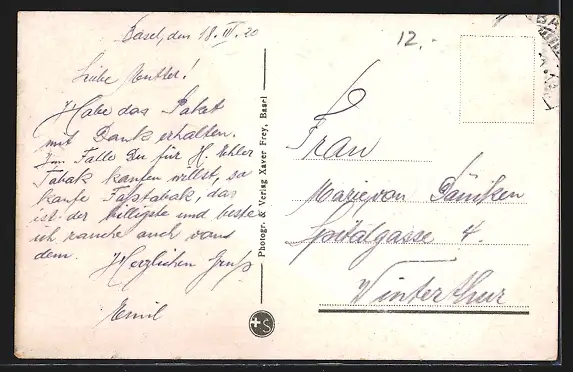 Basel, den 18. IV. 20
Liebe Mutter!
Habe das Paket
mit Dank erhalten.
Im Falle Du für H. Ehler
Tabak kaufen willst, so
kaufe Faßtabak, das
ist der billigste und beste
ich rauche auch vons
dem. Herzlichen Gruß
Emil
Photogr. & Verlag Xaver Frey, Basel
S
12.-
6
Frau
Marie von Däniken
Spitalgasse 4.
Winterthur